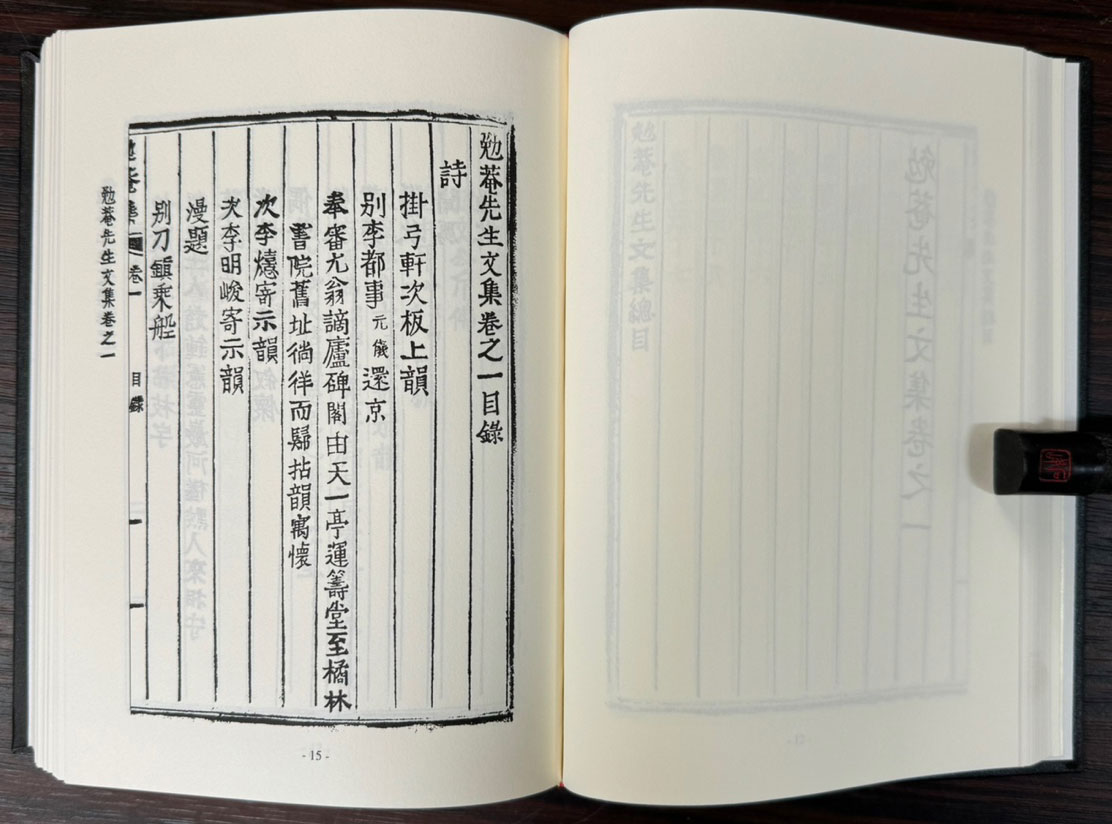 勉菴先生文集卷之一目錄
詩
掛弓軒次板上韻
別李都事元儀還京
奉審尤翁謫廬碑閣由天一亭運籌堂至橘林
書院舊址徜徉而歸拈韻寓懷
次李㷩寄示韻
次李明峻寄示韻
漫題
別刀鎭乘船
勉菴集 卷一 目錄 一
勉菴先生文集卷之一
- 15 -